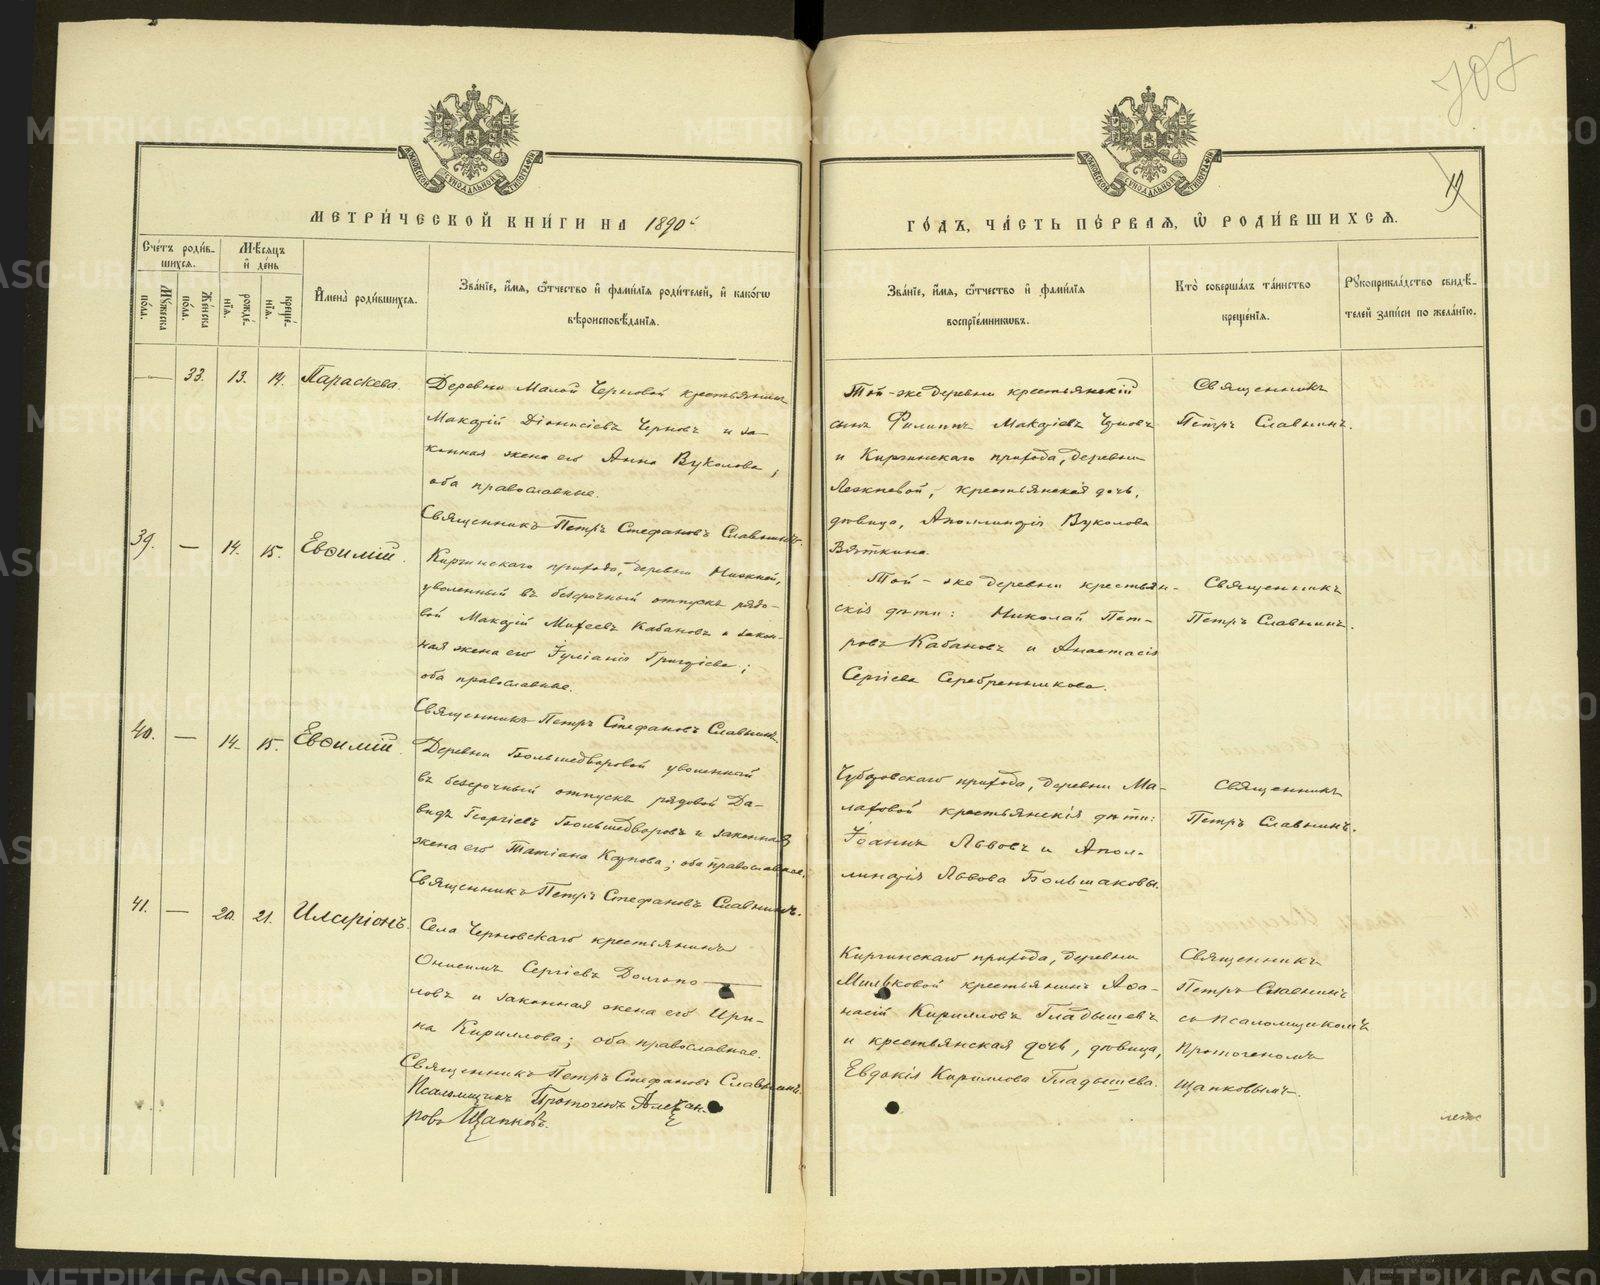 707
19
МЕТРИ́ЧЕСКОЙ КНИ́ГИ НА 1890
ГО́ДЪ, ЧА́СТЬ ПЕ́РВАЯ, Ѽ РОДИ́ВШИХСЯ.
Сче́тъ роди́в-
шихся.
Му́жеска по́ла.
Же́нска по́ла.
Мѣ́сяцъ
и҆ де́нь
рожде́нїя.
креще́нїя.
И҆мена̀ роди́вшихся.
Зва́нїе, и҆́мя, ѻ҆́тчество и҆ фами́лїя роди́телей, и҆ како́гѡ
вѣроисповѣ́данїя.
Зва́нїе, и҆́мя, ѻ҆́тчество и҆ фами́лїя
воспрїе́мникѡвъ.
Кто̀ соверша́лъ та́инство
креще́нїя.
Рꙋкоприкла́дство свидѣ́-
телей за́писи по жела́нїю.
— 33. 13. 14. Параскева.
Деревни Малой Черновой крестьянинъ
Макарій Діонисіевъ Черновъ и за-
конная жена его Анна Вуколова;
оба православные.
Священникъ Петръ Стефановъ Славнинъ.
Той-же деревни крестьянскій
сынъ Филиппъ Макаріевъ Черновъ
и Киргинскаго прихода, деревни
крестьянская дочь,
дѣвица, Аполлинарія Вуколова
Вяткина.
Священникъ
Петръ Славнинъ.
39. — 14. 15. Евѳимій.
Киргинскаго прихода, деревни Нижней,
уволенный въ безсрочный отпускъ рядо-
вой Макарій Михеевъ Кабановъ и закон-
ная жена его Іуліанія Григоріева;
оба православные.
Священникъ Петръ Стефановъ Славнинъ.
Той-же деревни крестьян-
скія дѣти: Николай Пет-
ровъ Кабановъ и Анастасія
Сергіева Серебренникова.
Священникъ
Петръ Славнинъ.
40. — 14. 15. Евѳимій.
Деревни Большедворовой уволенный
въ безсрочный отпускъ рядовой Да-
видъ Георгіевъ Большедворовъ и законная
жена его Татіана Карпова; оба православные.
Священникъ Петръ Стефановъ Славнинъ.
Чубаровскаго прихода, деревни Ма-
лаховой крестьянскія дѣти:
Іоаннъ Львовъ и Апол-
линарія Львова Большаковы.
Священникъ
Петръ Славнинъ.
41. — 20. 21. Иларіонъ.
Села Черновскаго крестьянинъ
Онисимъ Сергіевъ Долгопо-
ловъ и законная жена его Ири-
на Кириллова; оба православные.
Священникъ Петръ Стефановъ Славнинъ.
Псаломщикъ Протогенъ Алексан-
ровъ Щапковъ.
Киргинскаго прихода, деревни
Мильковой крестьянинъ Аѳа-
насій Кирилловъ Гладышевъ
и крестьянская дочь, дѣвица,
Евдокія Кириллова Гладышева.
Священникъ
Петръ Славнинъ
съ псаломщикомъ
Протогеномъ
Щапковымъ.